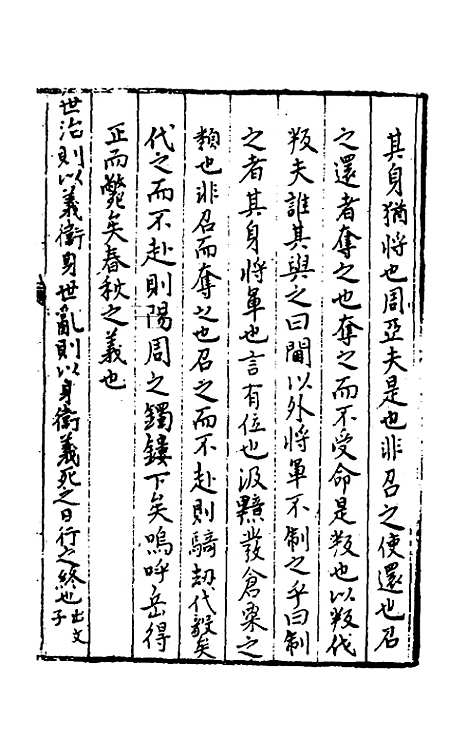 其身猶將也周亞夫是也非召之使還也召
之還者奪之也奪之而不受命是叛也以叛伐
叛夫誰其與之曰閫以外將軍不制之乎曰制
之者其身將軍也言有位也汲黯發倉粟之
類也非召而奪之也召之而不赴則騎劫代毅矣
代之而不赴則陽周之鐲鏤下矣嗚呼岳得
正而斃矣春秋之義也
世治則以義衛身世亂則以身衛義死之日行之終也出文
子